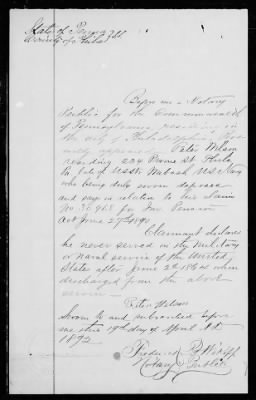 State of Penna } ss
County of Phila
Before me a Notary
Public for the Commonwealth
of Pennsylvania residing in
the city of Philadelphia
appeared Peter Wilson
residing 224 St Phila
Pa late of USS Wabash US Navy
who being duly sworn deposes
and says in relation to his claim
No for Pension
Act June 27th 1890.
Claimant declares
he never served in the Military
or Naval service of the United
States after June 2d 1864 when
discharged from the above
service
Peter Wilson
Sworn to and subscribed before
me this 19th day of April A.D.
1892
Frederick
Notary Public